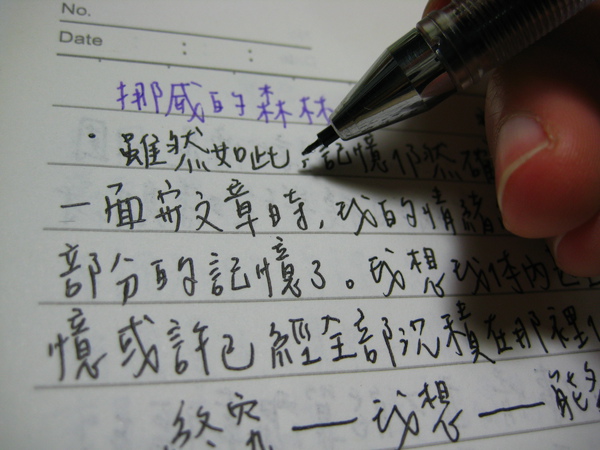 No.
Date : :
挪威的森林
·雖然如此,記憶仍然確
一面寫文章時,我的情緒
部分的記憶了。我想我体內
憶或許已經全部沉積在那裡
終究——我想——能